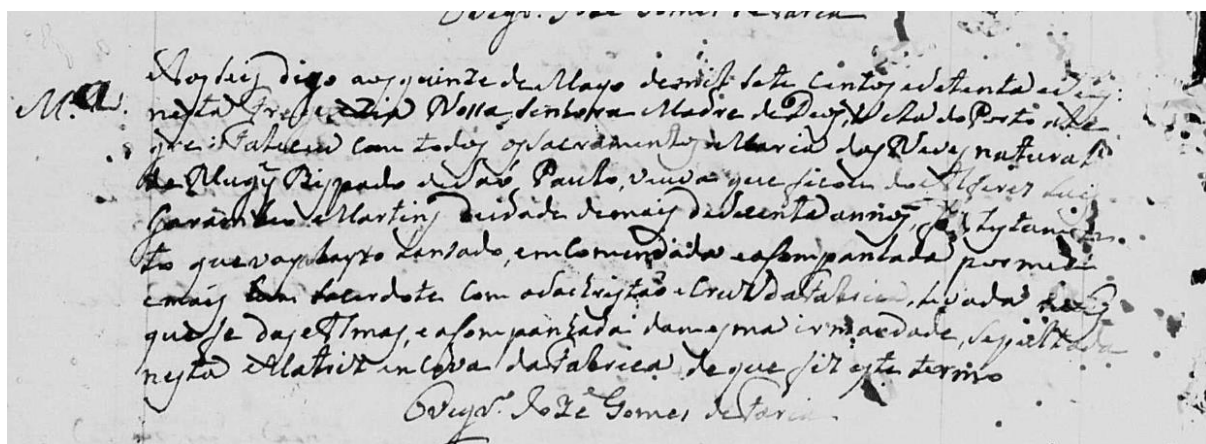 O Vigr.º Joze Gomes de Faria
Aos seis digo aos quinze de Mayo de mil sete centos e setenta e seis
M.ª nesta Freguezia Nossa Senhora Madre de Deus, Villa do Porto ale
gre: Faleceu com todos os sacramentos Maria das Neves natural
de Mugÿ Bispado de São Paulo, viuva que ficou do Alferes Luis
Garamho Martins de idade de mais de secenta annos, testamen
to que vay Layto lansado, emcomendada e acompanhada por mim
e mais hum sacerdote com o sachristão e Cruz da Fabrica, levada no
que se das Almas, e acompanhada da mesma irmandade, sepultada
nesta Matriz em cova da Fabrica de que fiz este termo
O Vigr.º Joze Gomes de Faria